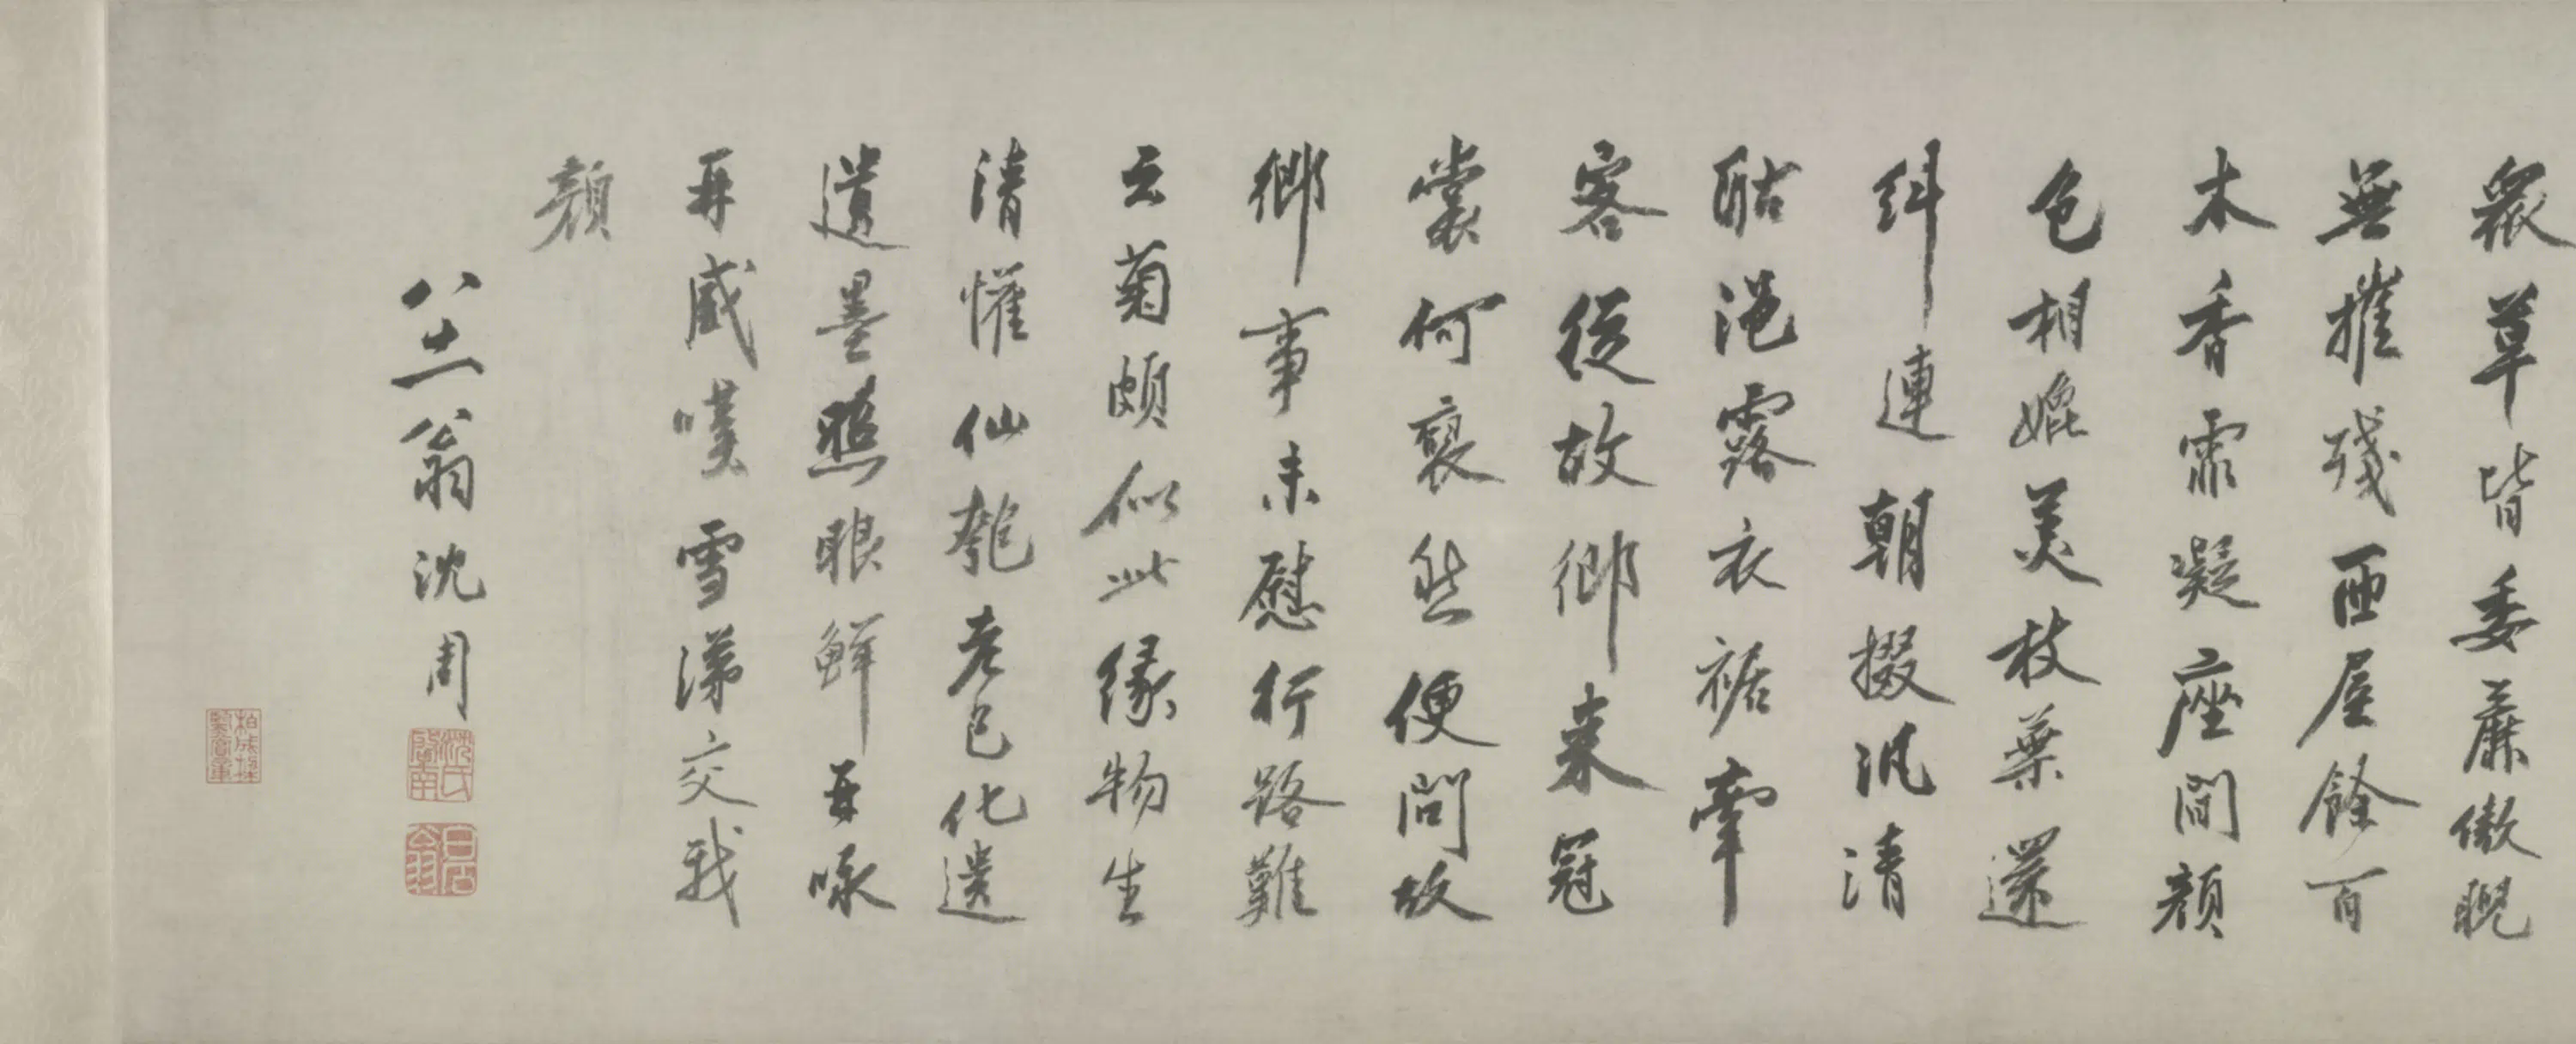 衆草皆委靡傲睨
無摧殘西屋餘百
木香霏凝座間顏
色相媲美枝葉還
糾連朝掇汎清
酤浥露衣裾牽
客從故鄉來冠
裳何褎然便問故
鄉事未慰行路難
云菊頗似此緣物生
清懽仙匏老已化遺
遺墨照眼鮮再咏
再感嘆雪涕交我
顏
八十二翁沈周
沈氏啟南
白石翁